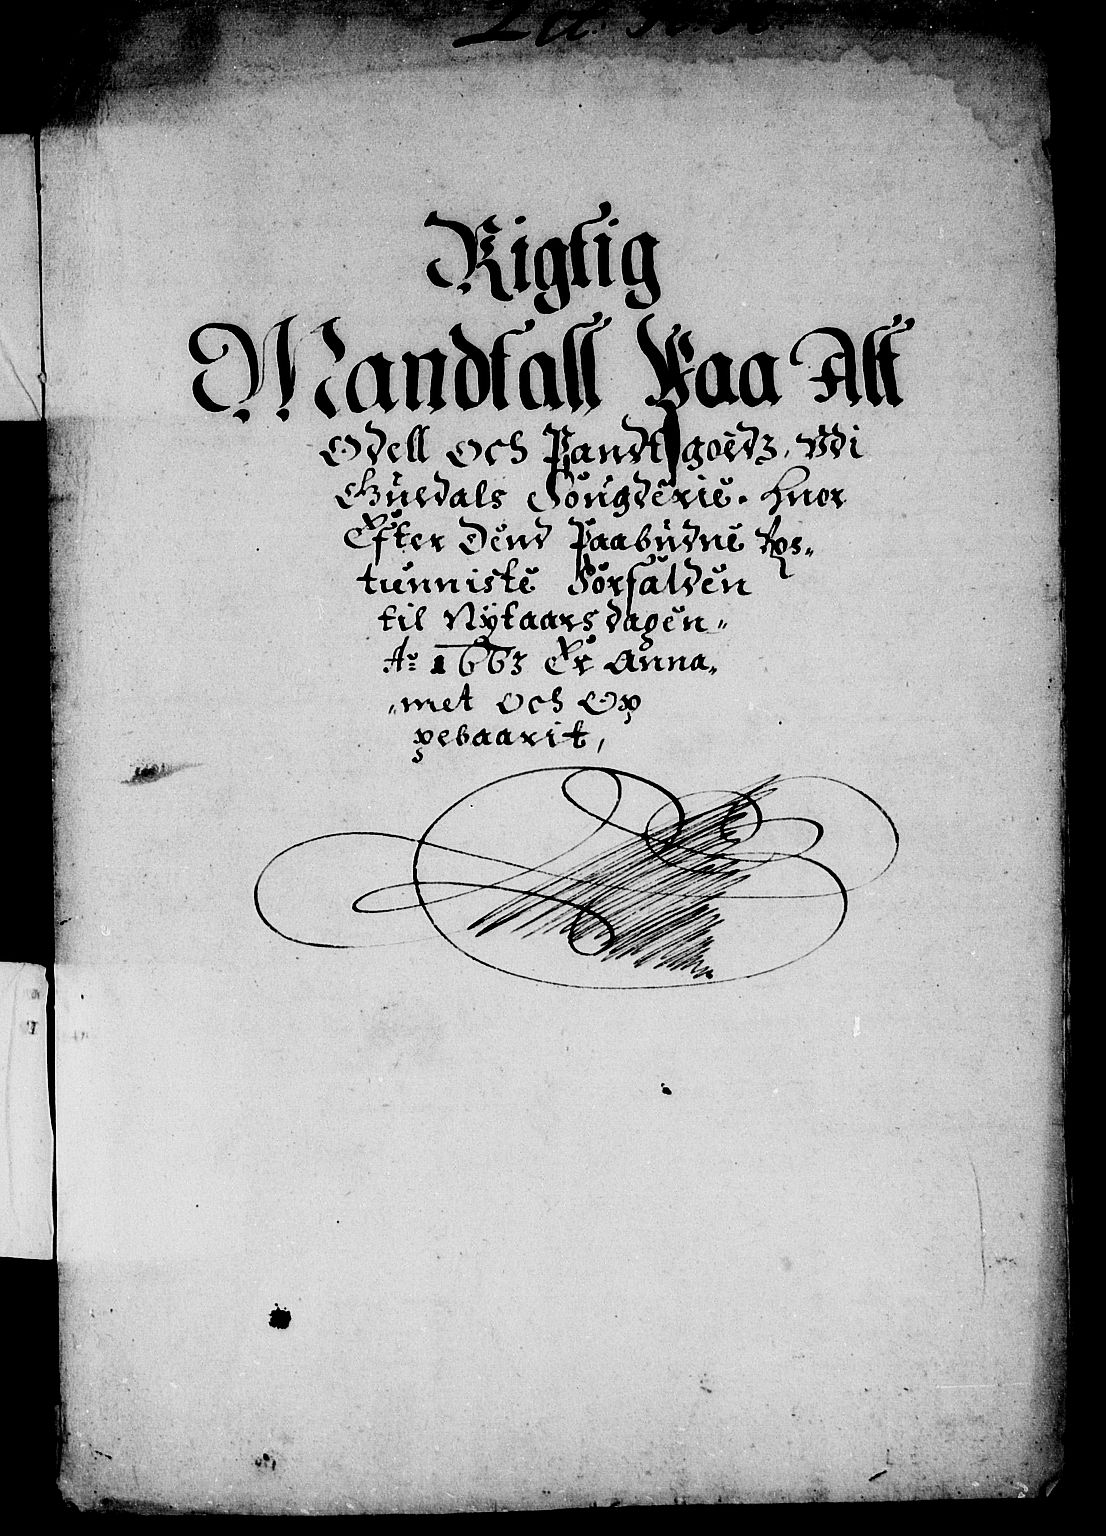 Lit. N. N.
Rigtig
Mandtall Paa Alt
Odell och Pandt goedz, Vdi
Guldals Fougderie. Huor
Efter Dend Paabudne Ros„
tienniste Forfalden
til Nytaarsdagen„
Ao 1663 Er Anna„
„met Och Op
pebaarit,